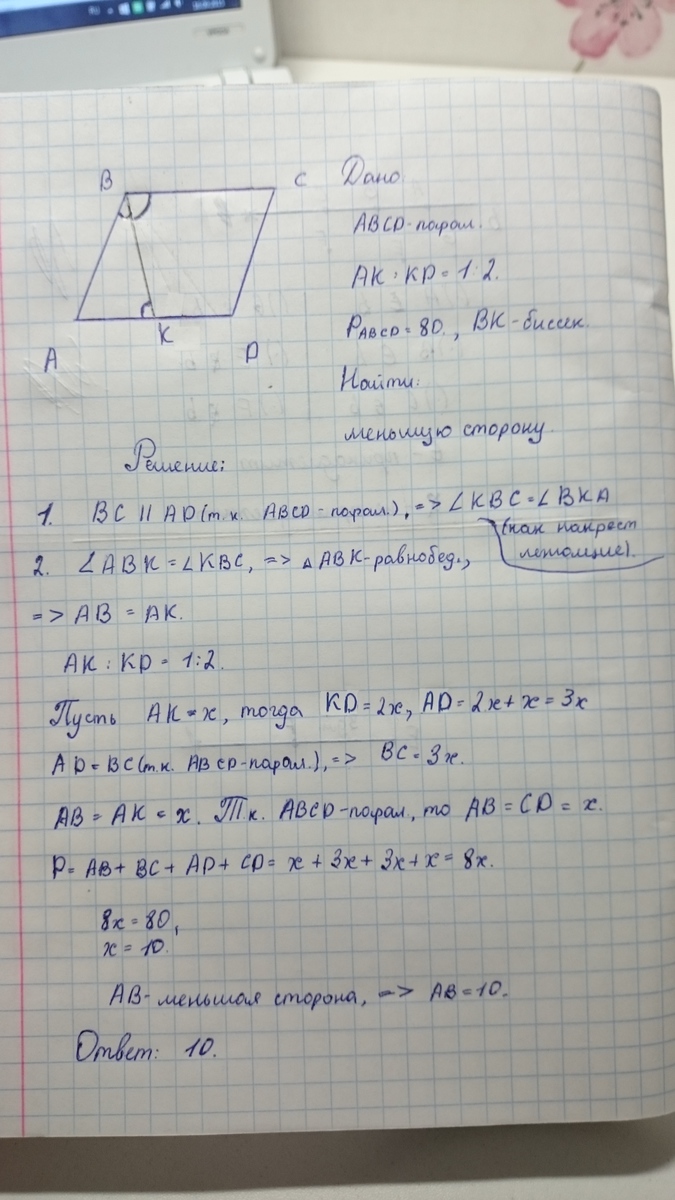 B
C
Дано
ABCD-парал.
AK : KD = 1:2.
PABCD = 80. , BK-биссек.
A
K
D
Найти:
меньшую сторону
Решение:
1. BC || AD (т.к. ABCD - парал.), => ∠KBC = ∠BKA
(как накрест
лежащие).
2. ∠ABK = ∠KBC, => △ABK-равнобед.,
=> AB = AK.
AK : KD = 1:2.
Пусть AK = x, тогда KD = 2x, AD = 2x + x = 3x
AD = BC (т.к. ABCD-парал.), => BC = 3x.
AB = AK = x. Т.к. ABCD-парал., то AB = CD = x.
P = AB + BC + AD + CD = x + 3x + 3x + x = 8x.
8x = 80,
x = 10.
AB- меньшая сторона, => AB = 10.
Ответ: 10.